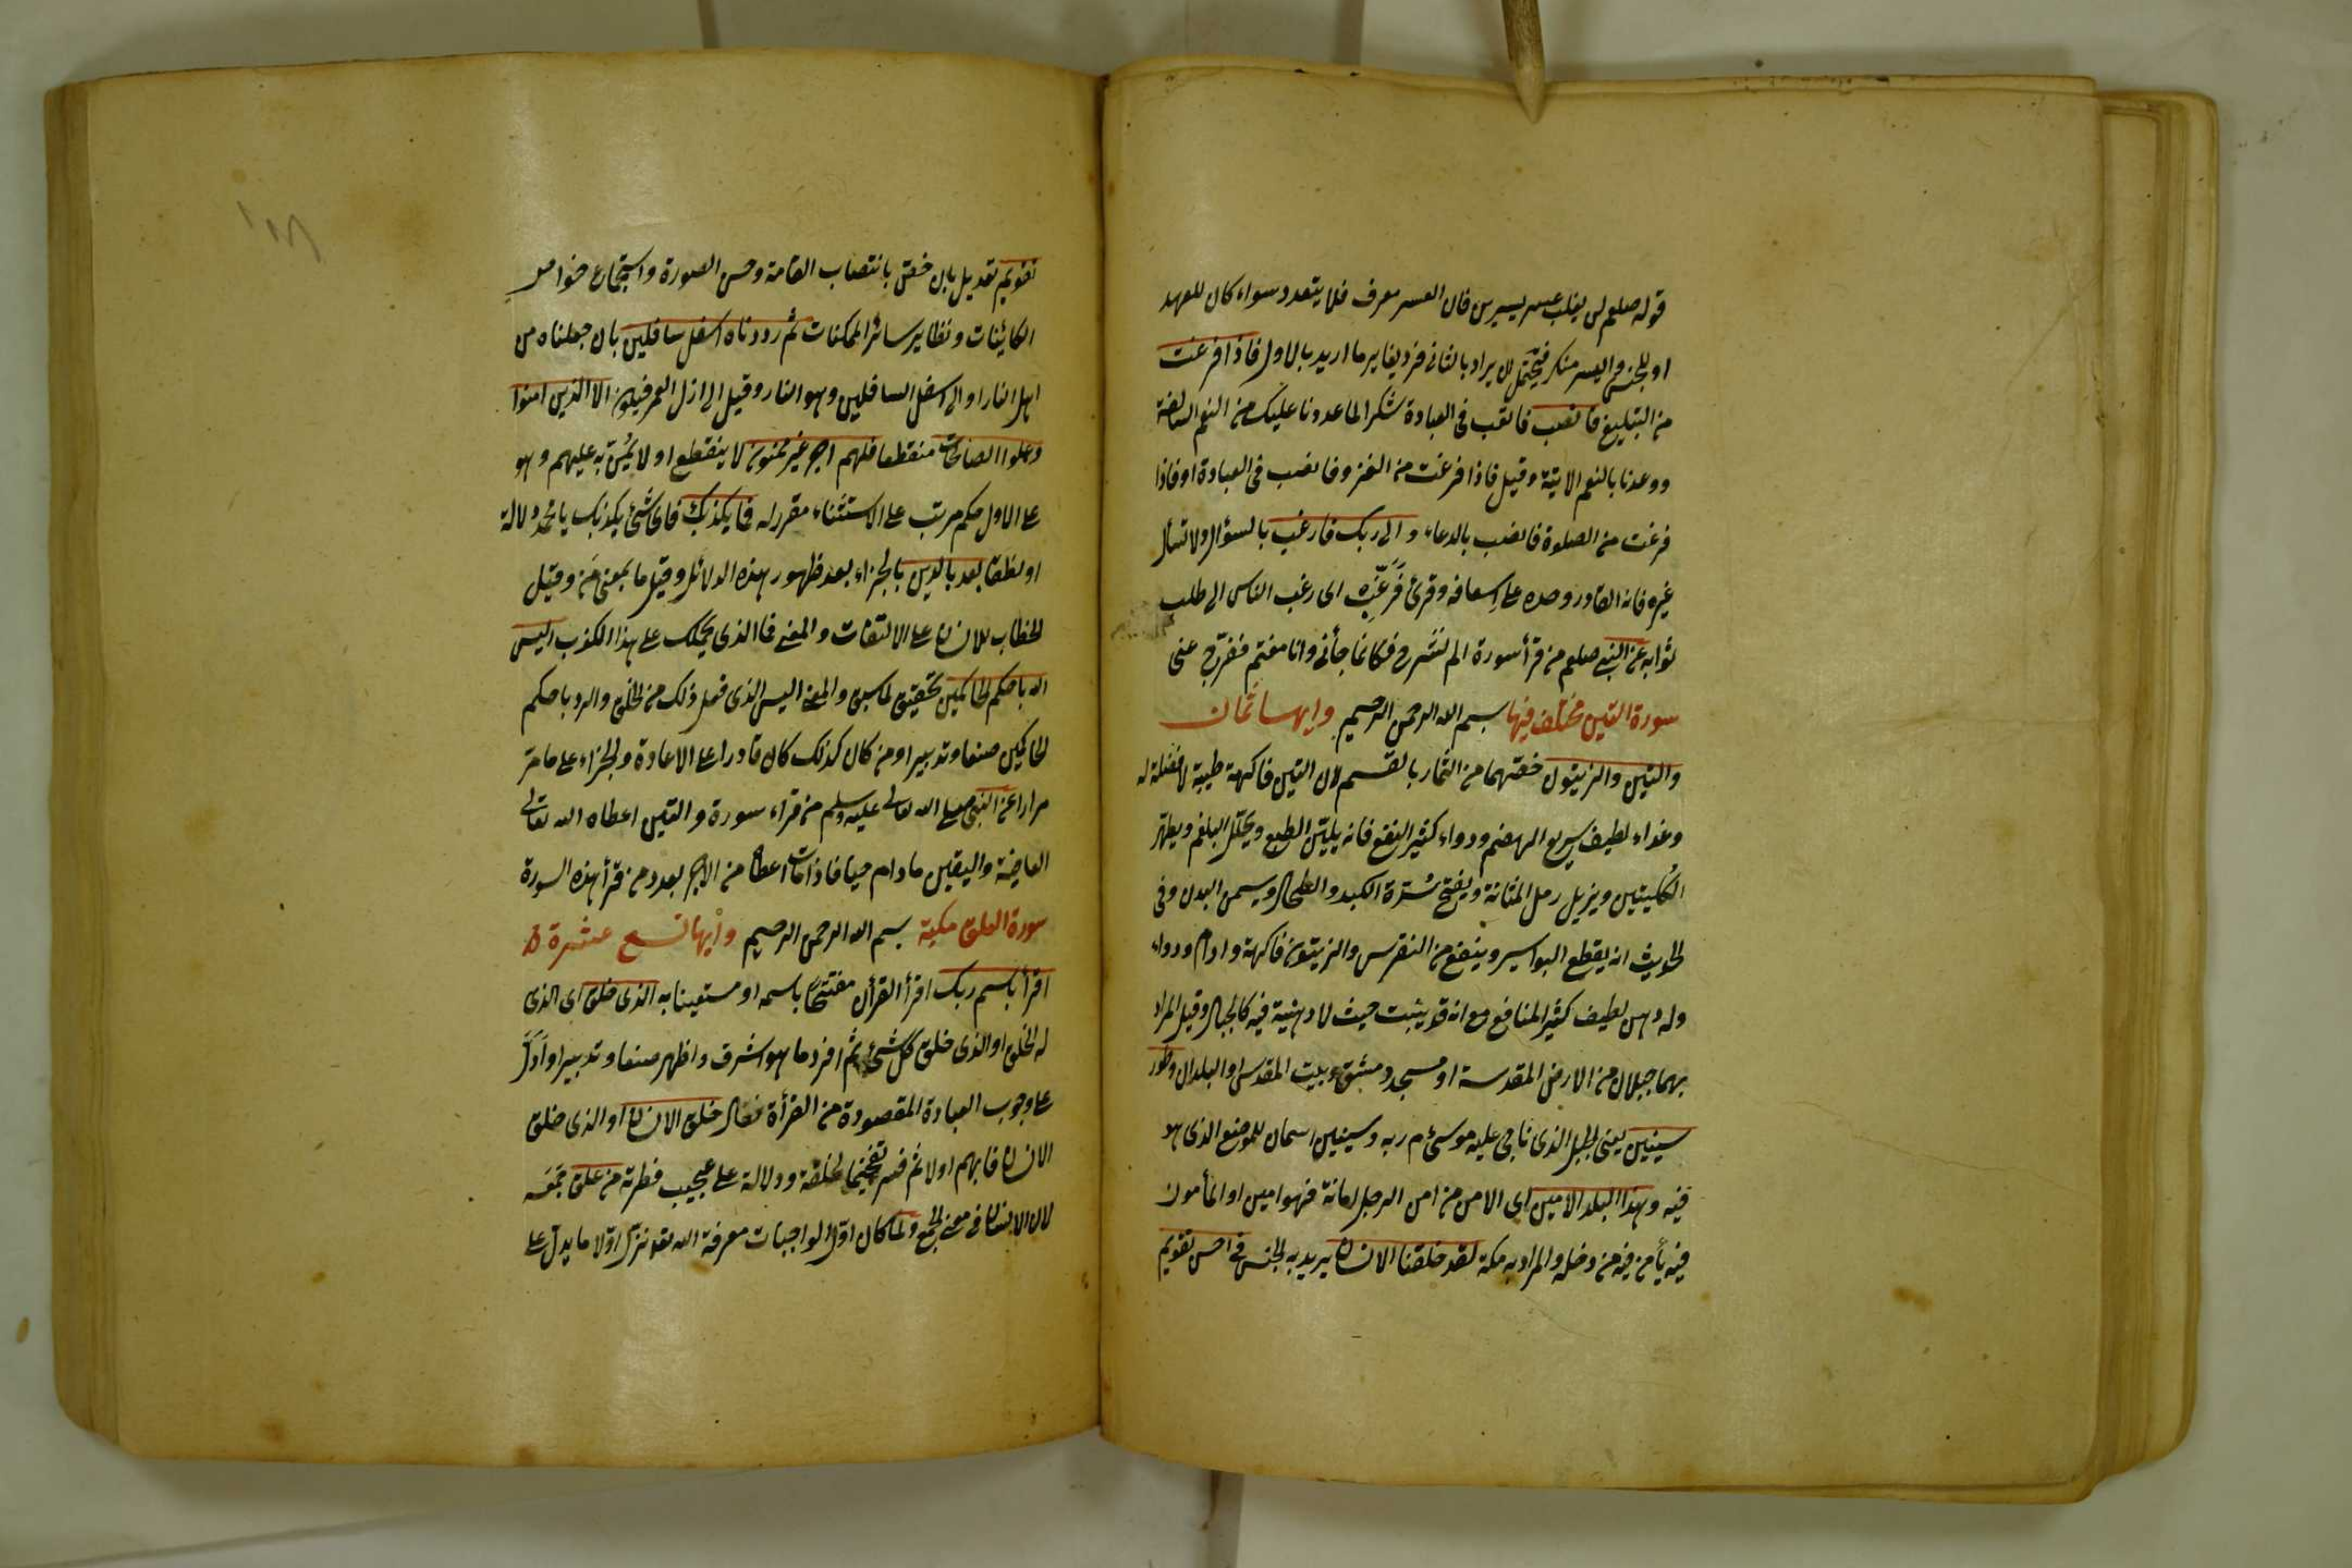 قوله صلعم لن يغلب عسر يسرين فان العسر معرف فلا يتعدد سواء كان للعهد
او للجنس واليسر منكر فيحتمل ان يراد بالثانى فرد يغاير ما اريد بالاول فاذا فرغت
من التبليغ فانصب فاتعب فى العبادة شكرا لما عددنا عليك من النعم السالفة
ووعدنا بالنعم الاتية وقيل فاذا فرغت من الغزو فانصب فى العبادة او فاذا
فرغت من الصلوة فانصب بالدعاء والى ربك فارغب بالسؤال ولا تسأل
غيره فانه القادر وحده على اسعافه وقرئ فرغب اى رغب الناس الى طلب
ثوابه عن النبى صلعم من قرأ سورة الم نشرح فكانما جأنى وانا مغتم ففرج عنى
سورة التين مختلف فيها بسم الله الرحمن الرحيم وايها ثمان
والتين والزيتون خصهما من الثمار بالقسم لان التين فاكهة طيبة لا فضلة له
وغذاء لطيف سريع الهضم ودواء كثير النفع فانه يلين الطبع ويحلل البلغم ويطهر
الكليتين ويزيل رمل المثانة ويفتح سدة الكبد والطحال ويسمن البدن وفى
الحديث انه يقطع البواسير وينفع من النقرس والزيتون فاكهة وادام ودواء
وله دهن لطيف كثير المنافع مع انه قد ينبت حيث لا دهنية فيه كالجبال وقيل المراد
بهما جبلان من الارض المقدسة او مسجد دمشق وبيت المقدس او البلدان وطور
سينين يعنى الجبل الذى ناجى عليه موسى م ربه وسينين اسمان للموضع الذى هو
فيه وهذا البلد الامين اى الامن من امن الرجل امانة فهو امين او المأمون
فيه يأمن فيه من دخله والمراد به مكة لقد خلقنا الانسان يريد به الجنس فى احسن تقويم
تقويم تعديل بان خص بانتصاب القامة وحسن الصورة واستجماع خواص
الكائنات ونظاير سائر الممكنات ثم رددناه اسفل سافلين بان جعلناه من
اهل النار او الى اسفل السافلين وهو النار وقيل الى ارذل العمر فيكون الا الذين امنوا
وعملوا الصالحات منقطعا فلهم اجر غير ممنون لا ينقطع او لا يمن به عليهم وهو
على الاول حكم مرتب على الاستثناء مقرر له فما يكذبك فاى شئ يكذبك يا محمد دلالة
او نطقا بعد بالدين بالجزاء بعد ظهور هذه الدلائل وقيل ما بمعنى من وقيل
الخطاب للانسان على الالتفات والمعنى فما الذى يحملك على هذا الكذب اليس
الله باحكم الحاكمين تحقيق لما سبق والمعنى اليس الذى فعل ذلك من الخلق والرد باحكم
الحاكمين صنعا وتدبيرا ومن كان كذلك كان قادرا على الاعادة والجزاء على ما مر
مرارا عن النبى صلى الله تعالى عليه وسلم من قراء سورة والتين اعطاه الله تعالى
العافية واليقين ما دام حيا فاذا مات اعطاه من الاجر بعدد من قرأ هذه السورة
سورة العلق مكية بسم الله الرحمن الرحيم وايها تسع عشرة
اقرأ باسم ربك اقرأ القرأن مفتتحا باسمه او مستعينا به الذى خلق اى الذى
له الخلق او الذى خلق كل شئ ثم افرد ما هو اشرف واظهر صنعا وتدبيرا وادل
على وجوب العبادة المقصودة من القرأة فقال خلق الانسان او الذى خلق
الانسان فابهم اولا ثم فسر تفخيما لخلقه ودلالة على عجيب فطرته من علق جمعه
لان الانسان فى معنى الجمع ولما كان اول الواجبات معرفة الله تعه نزل اولا ما يدل على